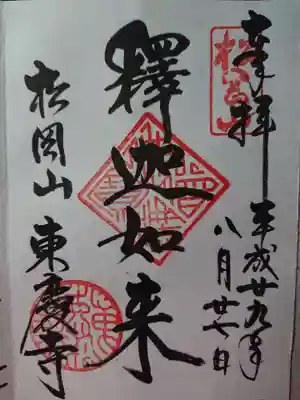 奉拝
平成廿九年
八月廿七日
釋迦如来
松岡山
東慶寺